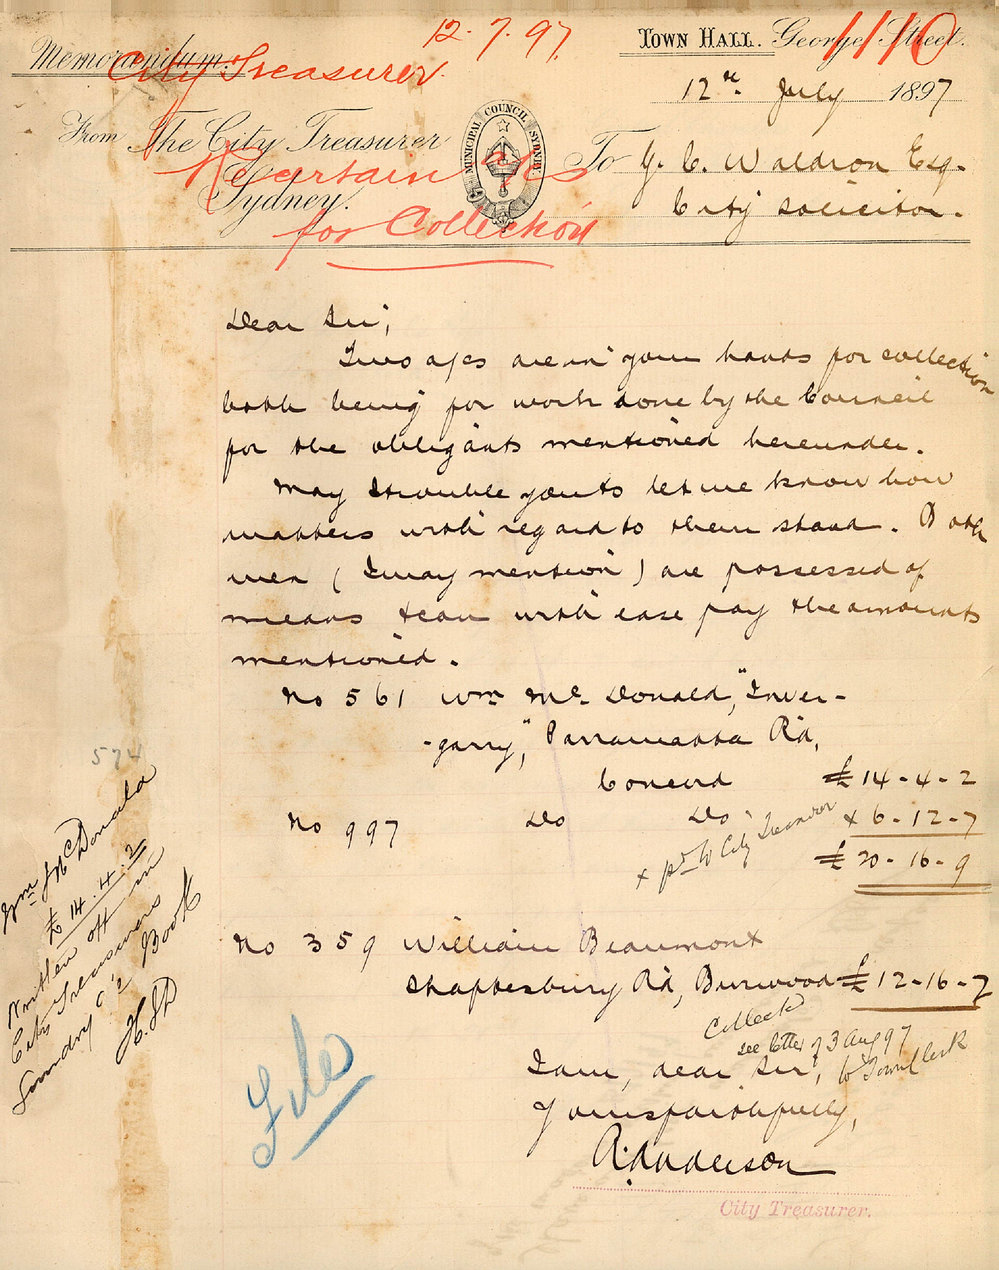 12.7.97.
1110
Memorandum.
City Treasurer.
TOWN HALL. George Street.
12th July 1897
From The City Treasurer
Sydney.
MUNICIPAL COUNCIL SYDNEY.
To G. C. Waldron Esq.
City Solicitor.
Re certain a/cs
for Collection
Dear Sir,
Two a/cs are in your hands for collection
both being for work done by the Council
for the obligants mentioned hereunder.
May I trouble you to let me know how
matters with regard to them stand. Both
men (I may mention) are possessed of
means & can with ease pay the amounts
mentioned.
No 561 Wm. Mc. Donald, "Inver-
-garry," Parramatta Rd,
Concord £14-4-2
No 997 Do Do x 6-12-7
x pd to City Treasurer
£20-16-9
No 359 William Beaumont
Shaftesbury Rd, Burwood £12-16-7
Collected
see letter of 3 Aug 97
to Town Clerk
I am, dear Sir,
Yours faithfully,
R. Anderson
City Treasurer.
574
Wm. McDonald
£14.4.2
Written off in
City Treasurers
Sundry a/c Book
File